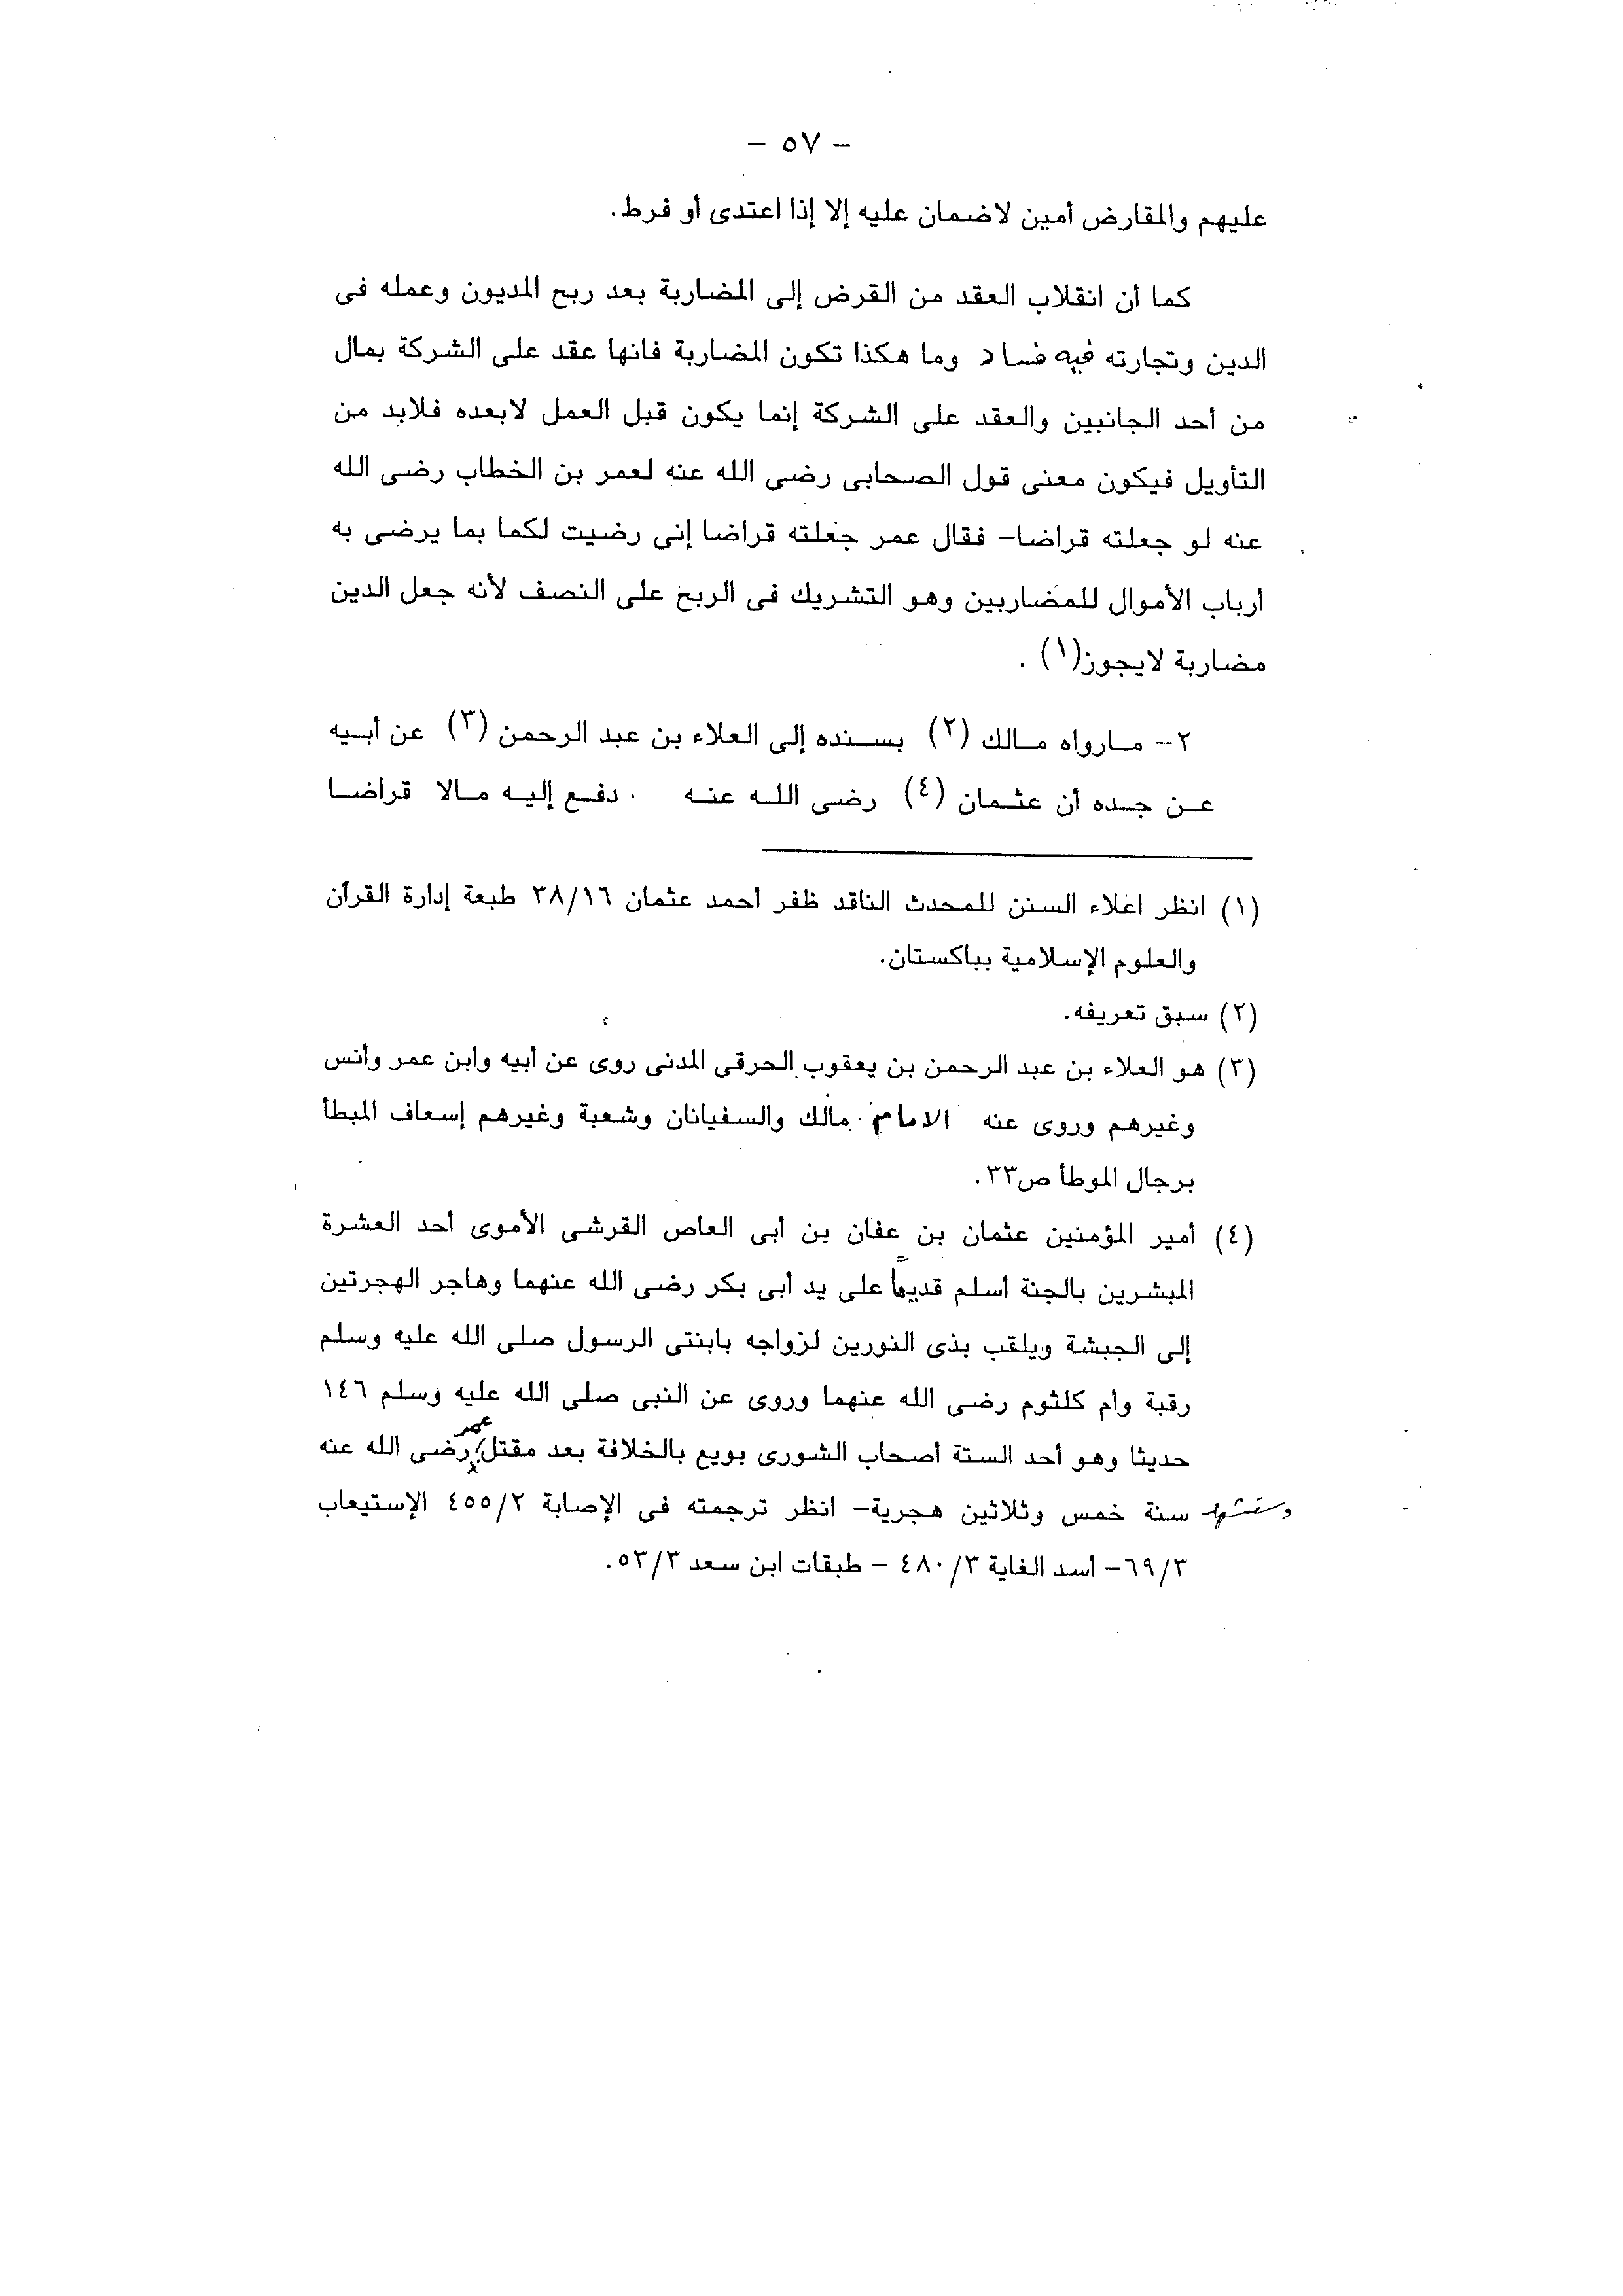 - ٥٧ -
عليهم والمقارض أمين لاضمان عليه إلا إذا اعتدى أو فرط.
كما أن انقلاب العقد من القرض إلى المضاربة بعد ربح المديون وعمله فى
الدين وتجارته فيه فساد وما هكذا تكون المضاربة فانها عقد على الشركة بمال
من أحد الجانبين والعقد على الشركة إنما يكون قبل العمل لابعده فلابد من
التأويل فيكون معنى قول الصحابى رضى الله عنه لعمر بن الخطاب رضى الله
عنه لو جعلته قراضا- فقال عمر جعلته قراضا إنى رضيت لكما بما يرضى به
أرباب الأموال للمضاربين وهو التشريك فى الربح على النصف لأنه جعل الدين
مضاربة لايجوز(١) .
٢- مارواه مالك (٢) بسنده إلى العلاء بن عبد الرحمن (٣) عن أبيه
عن جده أن عثمان (٤) رضى الله عنه دفع إليه مالا قراضا
(١) انظر اعلاء السنن للمحدث الناقد ظفر أحمد عثمان ٣٨/١٦ طبعة إدارة القرآن
والعلوم الإسلامية بباكستان.
(٢) سبق تعريفه.
(٣) هو العلاء بن عبد الرحمن بن يعقوب الحرقى المدنى روى عن أبيه وابن عمر وأنس
وغيرهم وروى عنه الامام مالك والسفيانان وشعبة وغيرهم إسعاف المبطأ
برجال الموطأ ص٣٣.
(٤) أمير المؤمنين عثمان بن عفان بن أبى العاص القرشى الأموى أحد العشرة
المبشرين بالجنة أسلم قديماً على يد أبى بكر رضى الله عنهما وهاجر الهجرتين
إلى الجبشة ويلقب بذى النورين لزواجه بابنتى الرسول صلى الله عليه وسلم
رقبة وأم كلثوم رضى الله عنهما وروى عن النبى صلى الله عليه وسلم ١٤٦
حديثا وهو أحد الستة أصحاب الشورى بويع بالخلافة بعد مقتل عمر رضى الله عنه
سنة خمس وثلاثين هجرية- انظر ترجمته فى الإصابة ٤٥٥/٢ الإستيعاب
٦٩/٣- أسد الغاية ٤٨٠/٣ - طبقات ابن سعد ٥٣/٣.